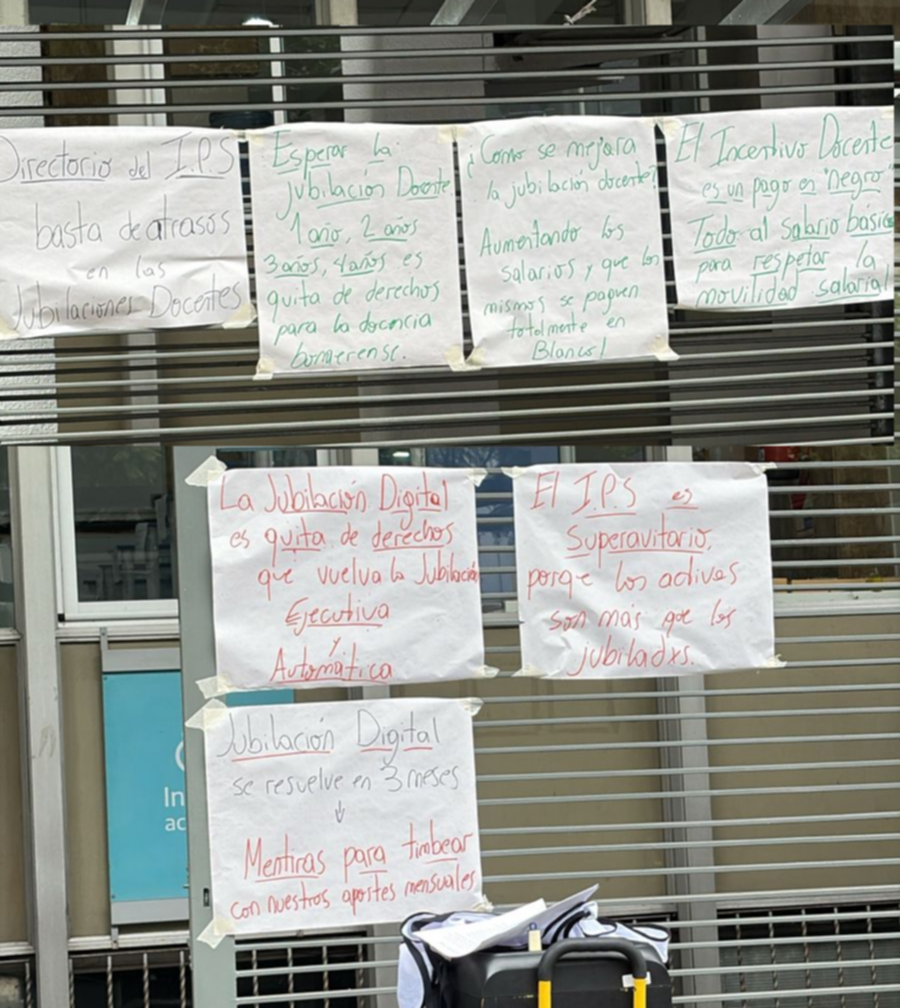 Directorio del I.P.S
basta de atrasos
en las
Jubilaciones Docentes
Esperar la
jubilación Docente
1 año, 2 años
3 años, 4 años es
quita de derechos
para la docencia
bonaerense.
¿Como se mejora
la jubilación docente?
Aumentando los
salarios y que los
mismos se paguen
totalmente en
Blanco!
El Incentivo Docente
es un pago en "negro"
Todo al salario básico
para respetar la
movilidad salarial!
La Jubilación Digital
es quita de derechos
que vuelva la Jubilación
Ejecutiva
y
Automática
El I.P.S es
Superavitario,
porque los activos
son más que los
jubiladxs.
Jubilación Digital
se resuelve en 3 meses
↓
Mentiras para timbear
con nuestros aportes mensuales
In
ac